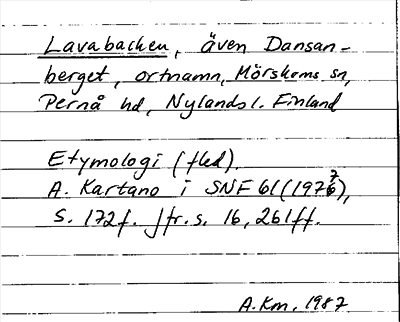 Lavabacken, även Dansan-
berget, ortnamn, Mörskoms sn,
Pernå hd, Nylands l. Finland
Etymologi (fled).
A. Kartano i SNF 61 (1977),
s. 172f. Jfr. s. 16, 261ff.
A.Km, 1987